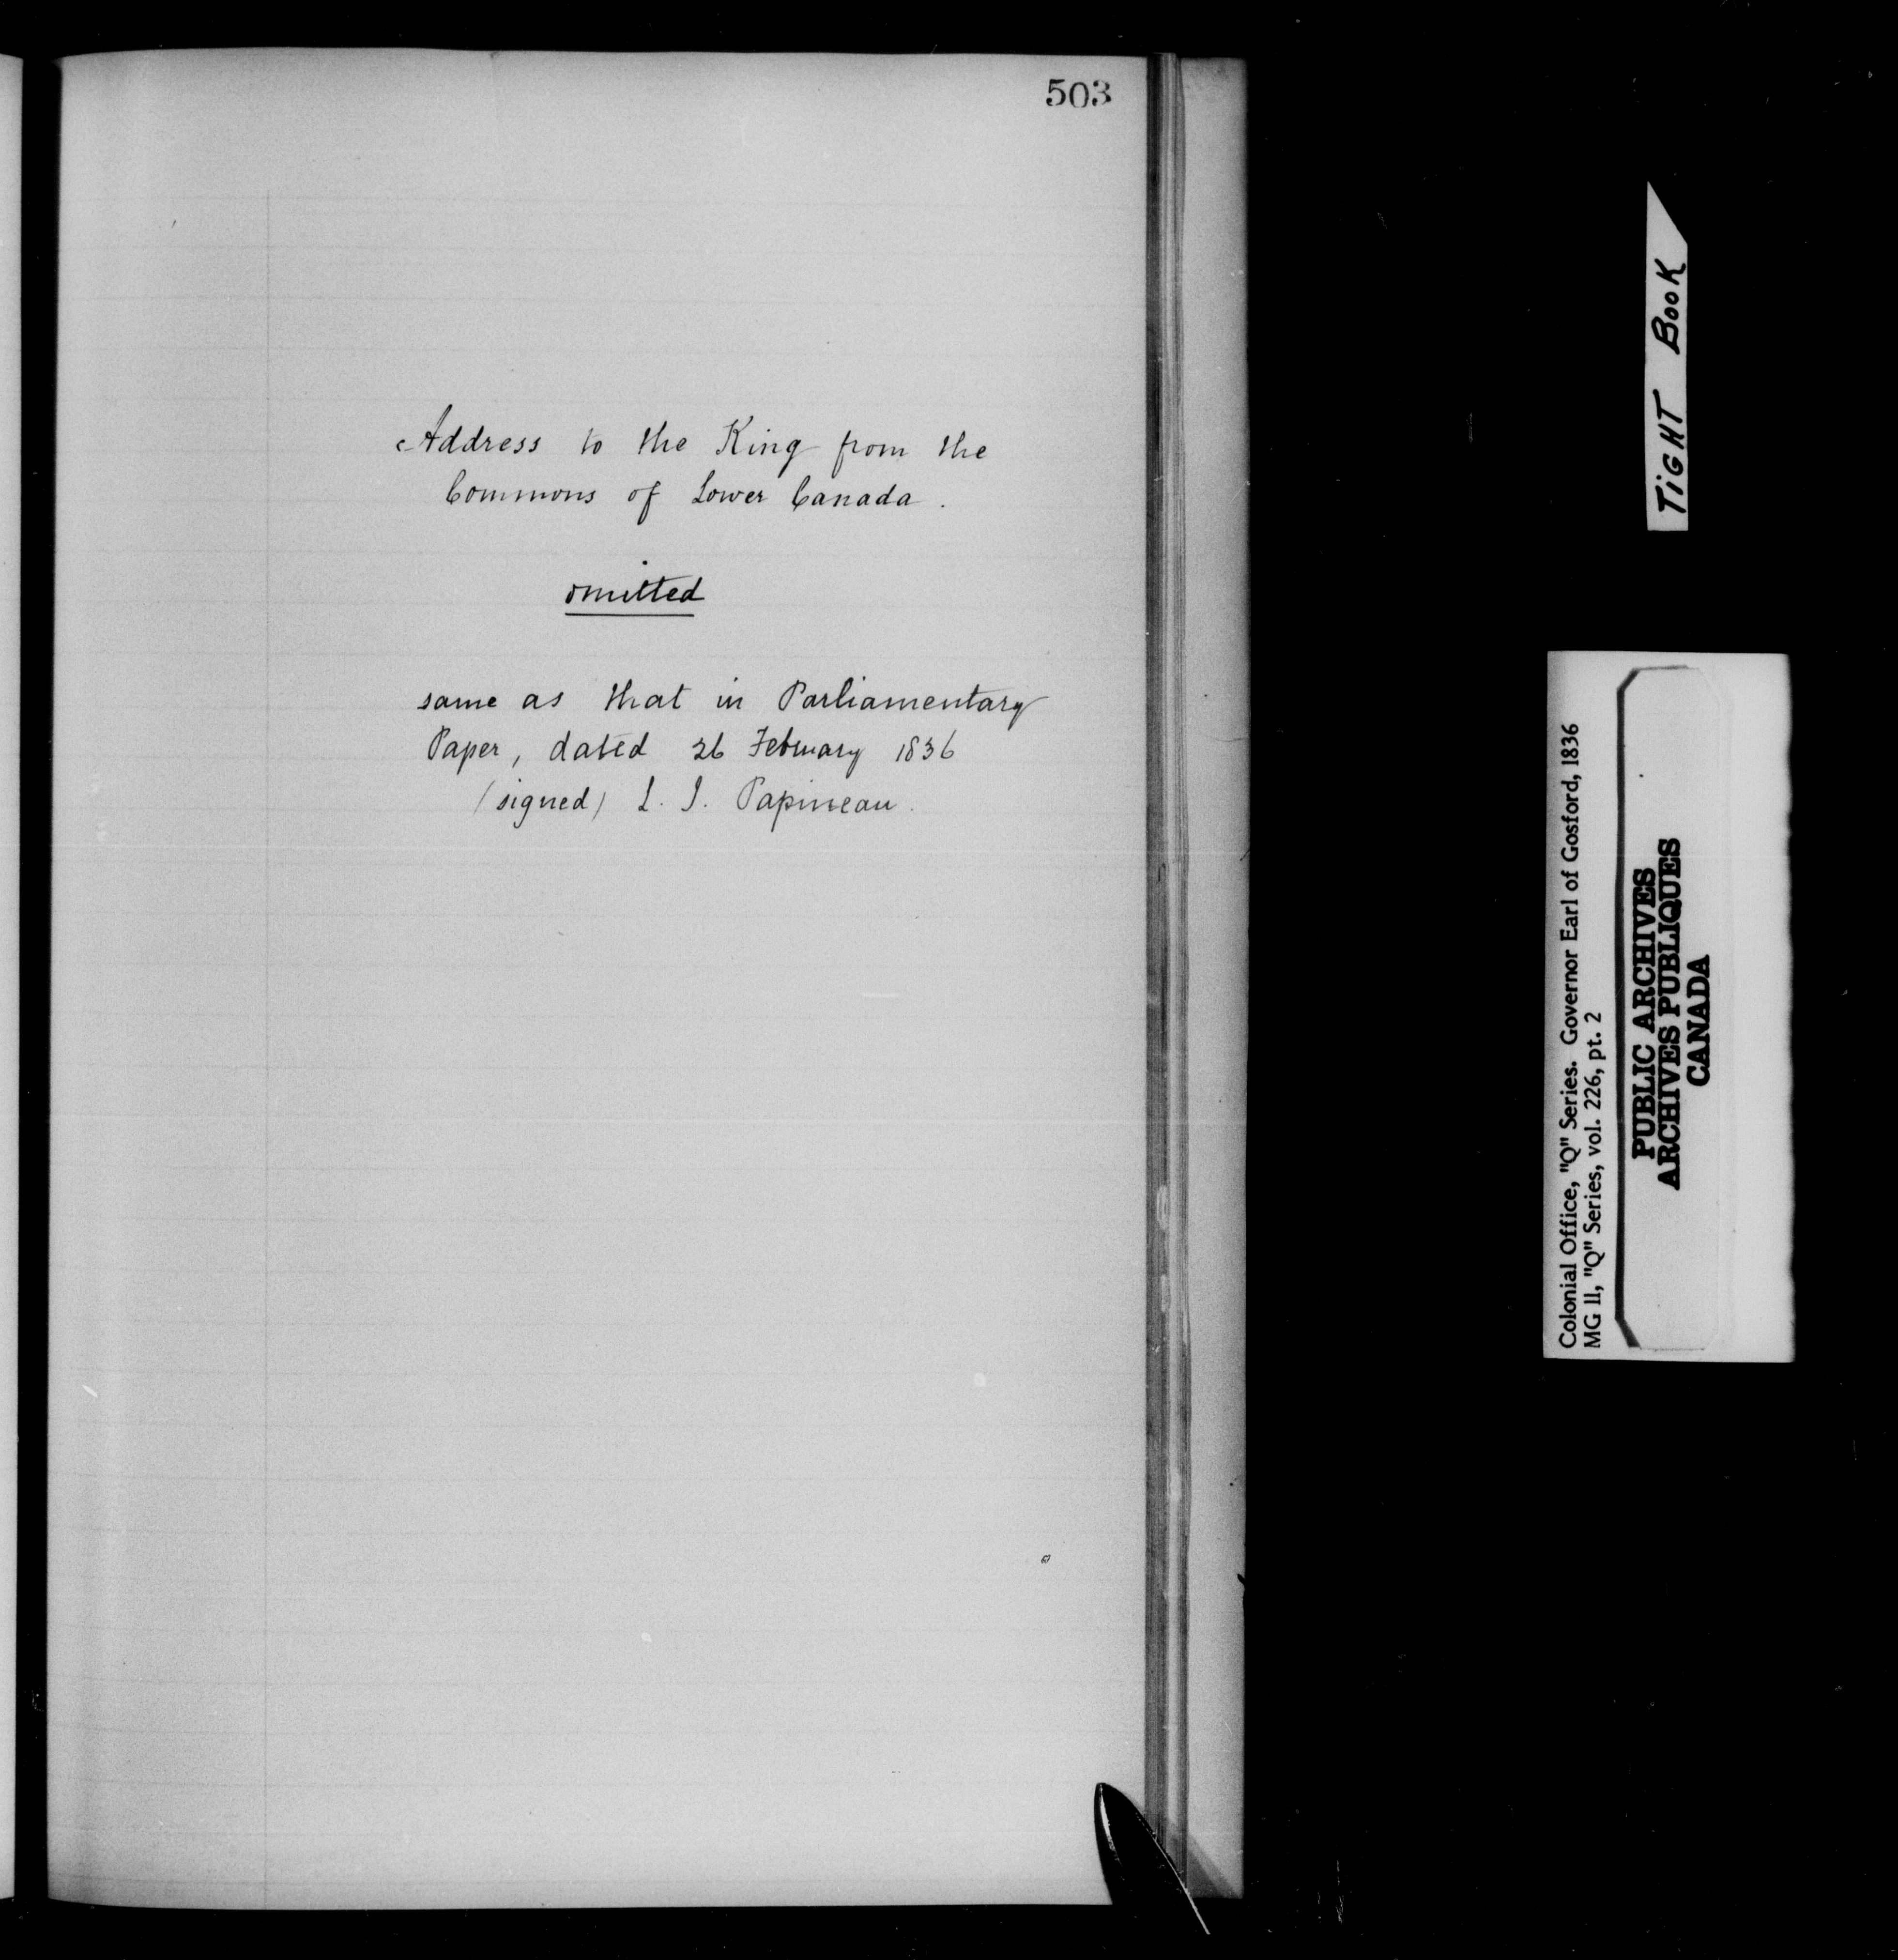 503
Address to the King from the
Commons of Lower Canada.
omitted
same as that in Parliamentary
Paper, dated 26 February 1836
(signed) L. J. Papineau.
TiGHT BooK
Colonial Office, "Q" Series. Governor Earl of Gosford, 1836
MG 11, "Q" Series, vol. 226, pt. 2
PUBLIC ARCHIVES
ARCHIVES PUBLIQUES
CANADA